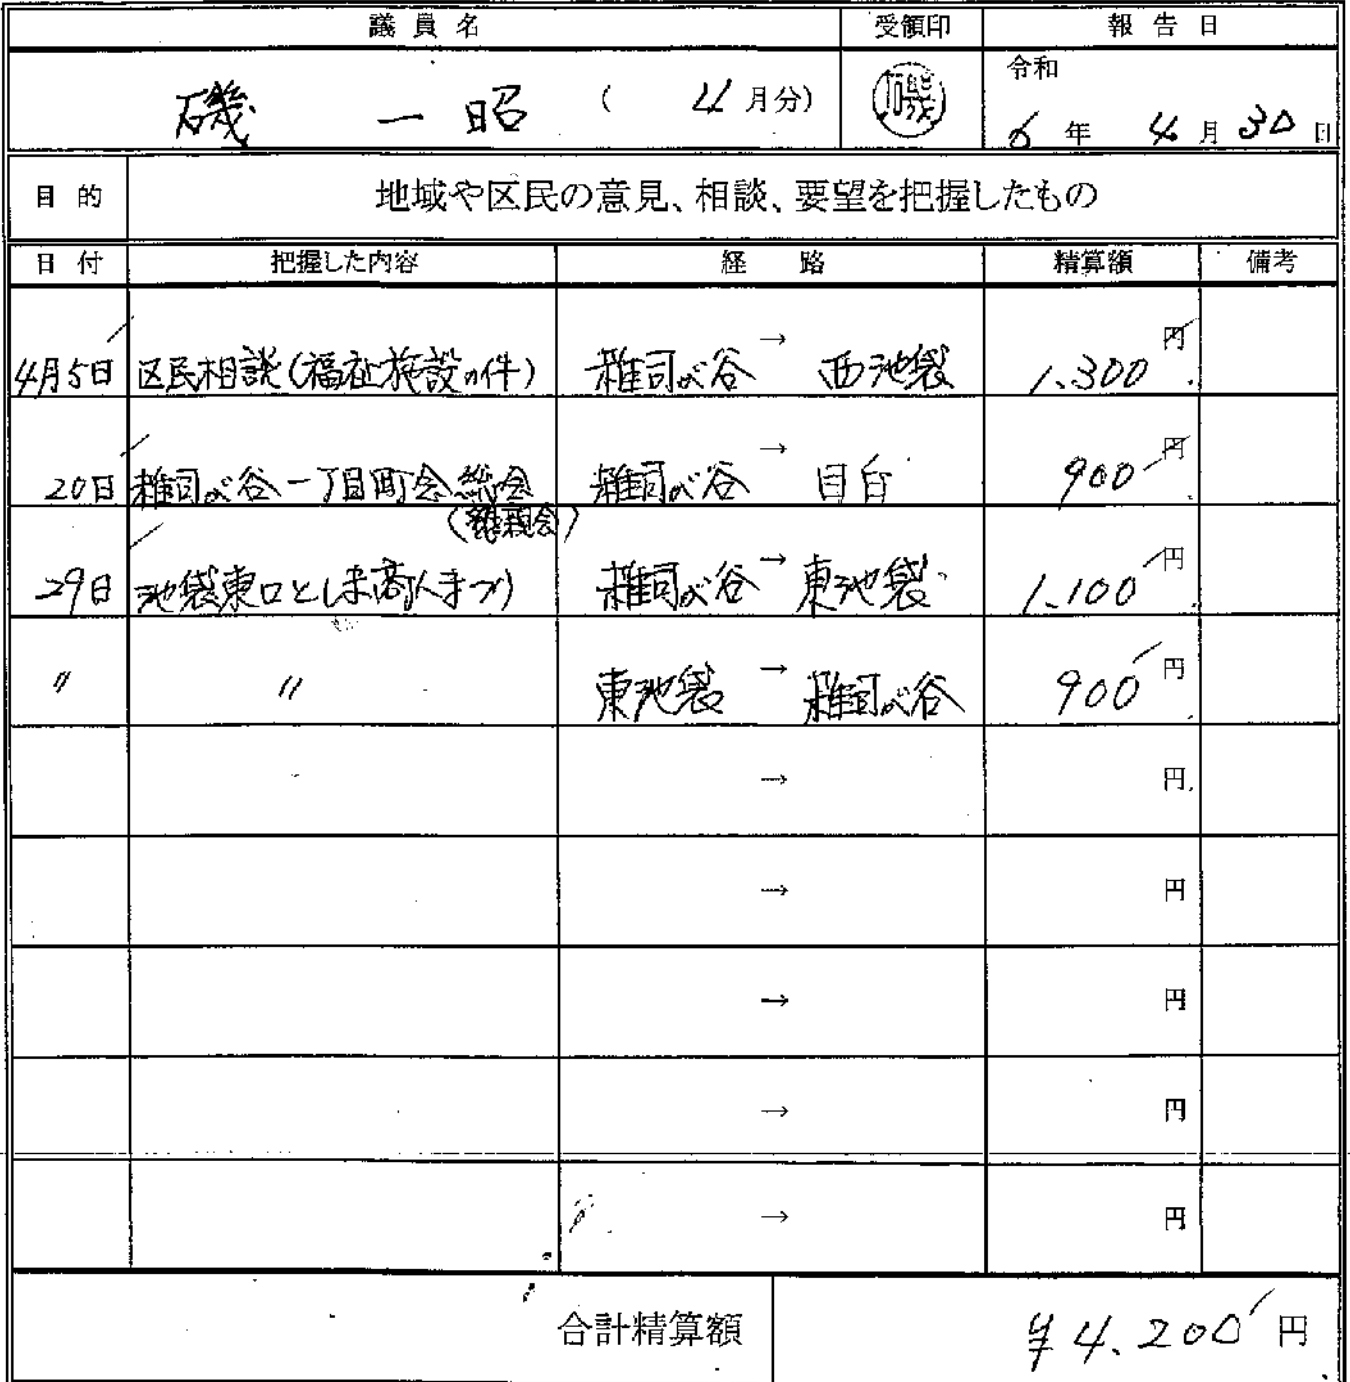 議員名 受領印 報告日
磯 一昭 ( 4月分) 磯 令和
6年 4月 30日
目的 地域や区民の意見、相談、要望を把握したもの
日付 把握した内容 経路 精算額 備考
4月5日 区民相談(福祉施設の件) 雑司が谷 → 西池袋 1.300円
20日 雑司が谷一丁目町会総会 雑司が谷 → 目白 900円
(懇親会)
29日 池袋東口としま商人まつり 雑司が谷 → 東池袋 1.100円
〃 〃 東池袋 → 雑司が谷 900円
→ 円
→ 円
→ 円
→ 円
→ 円
合計精算額 ¥4.200円